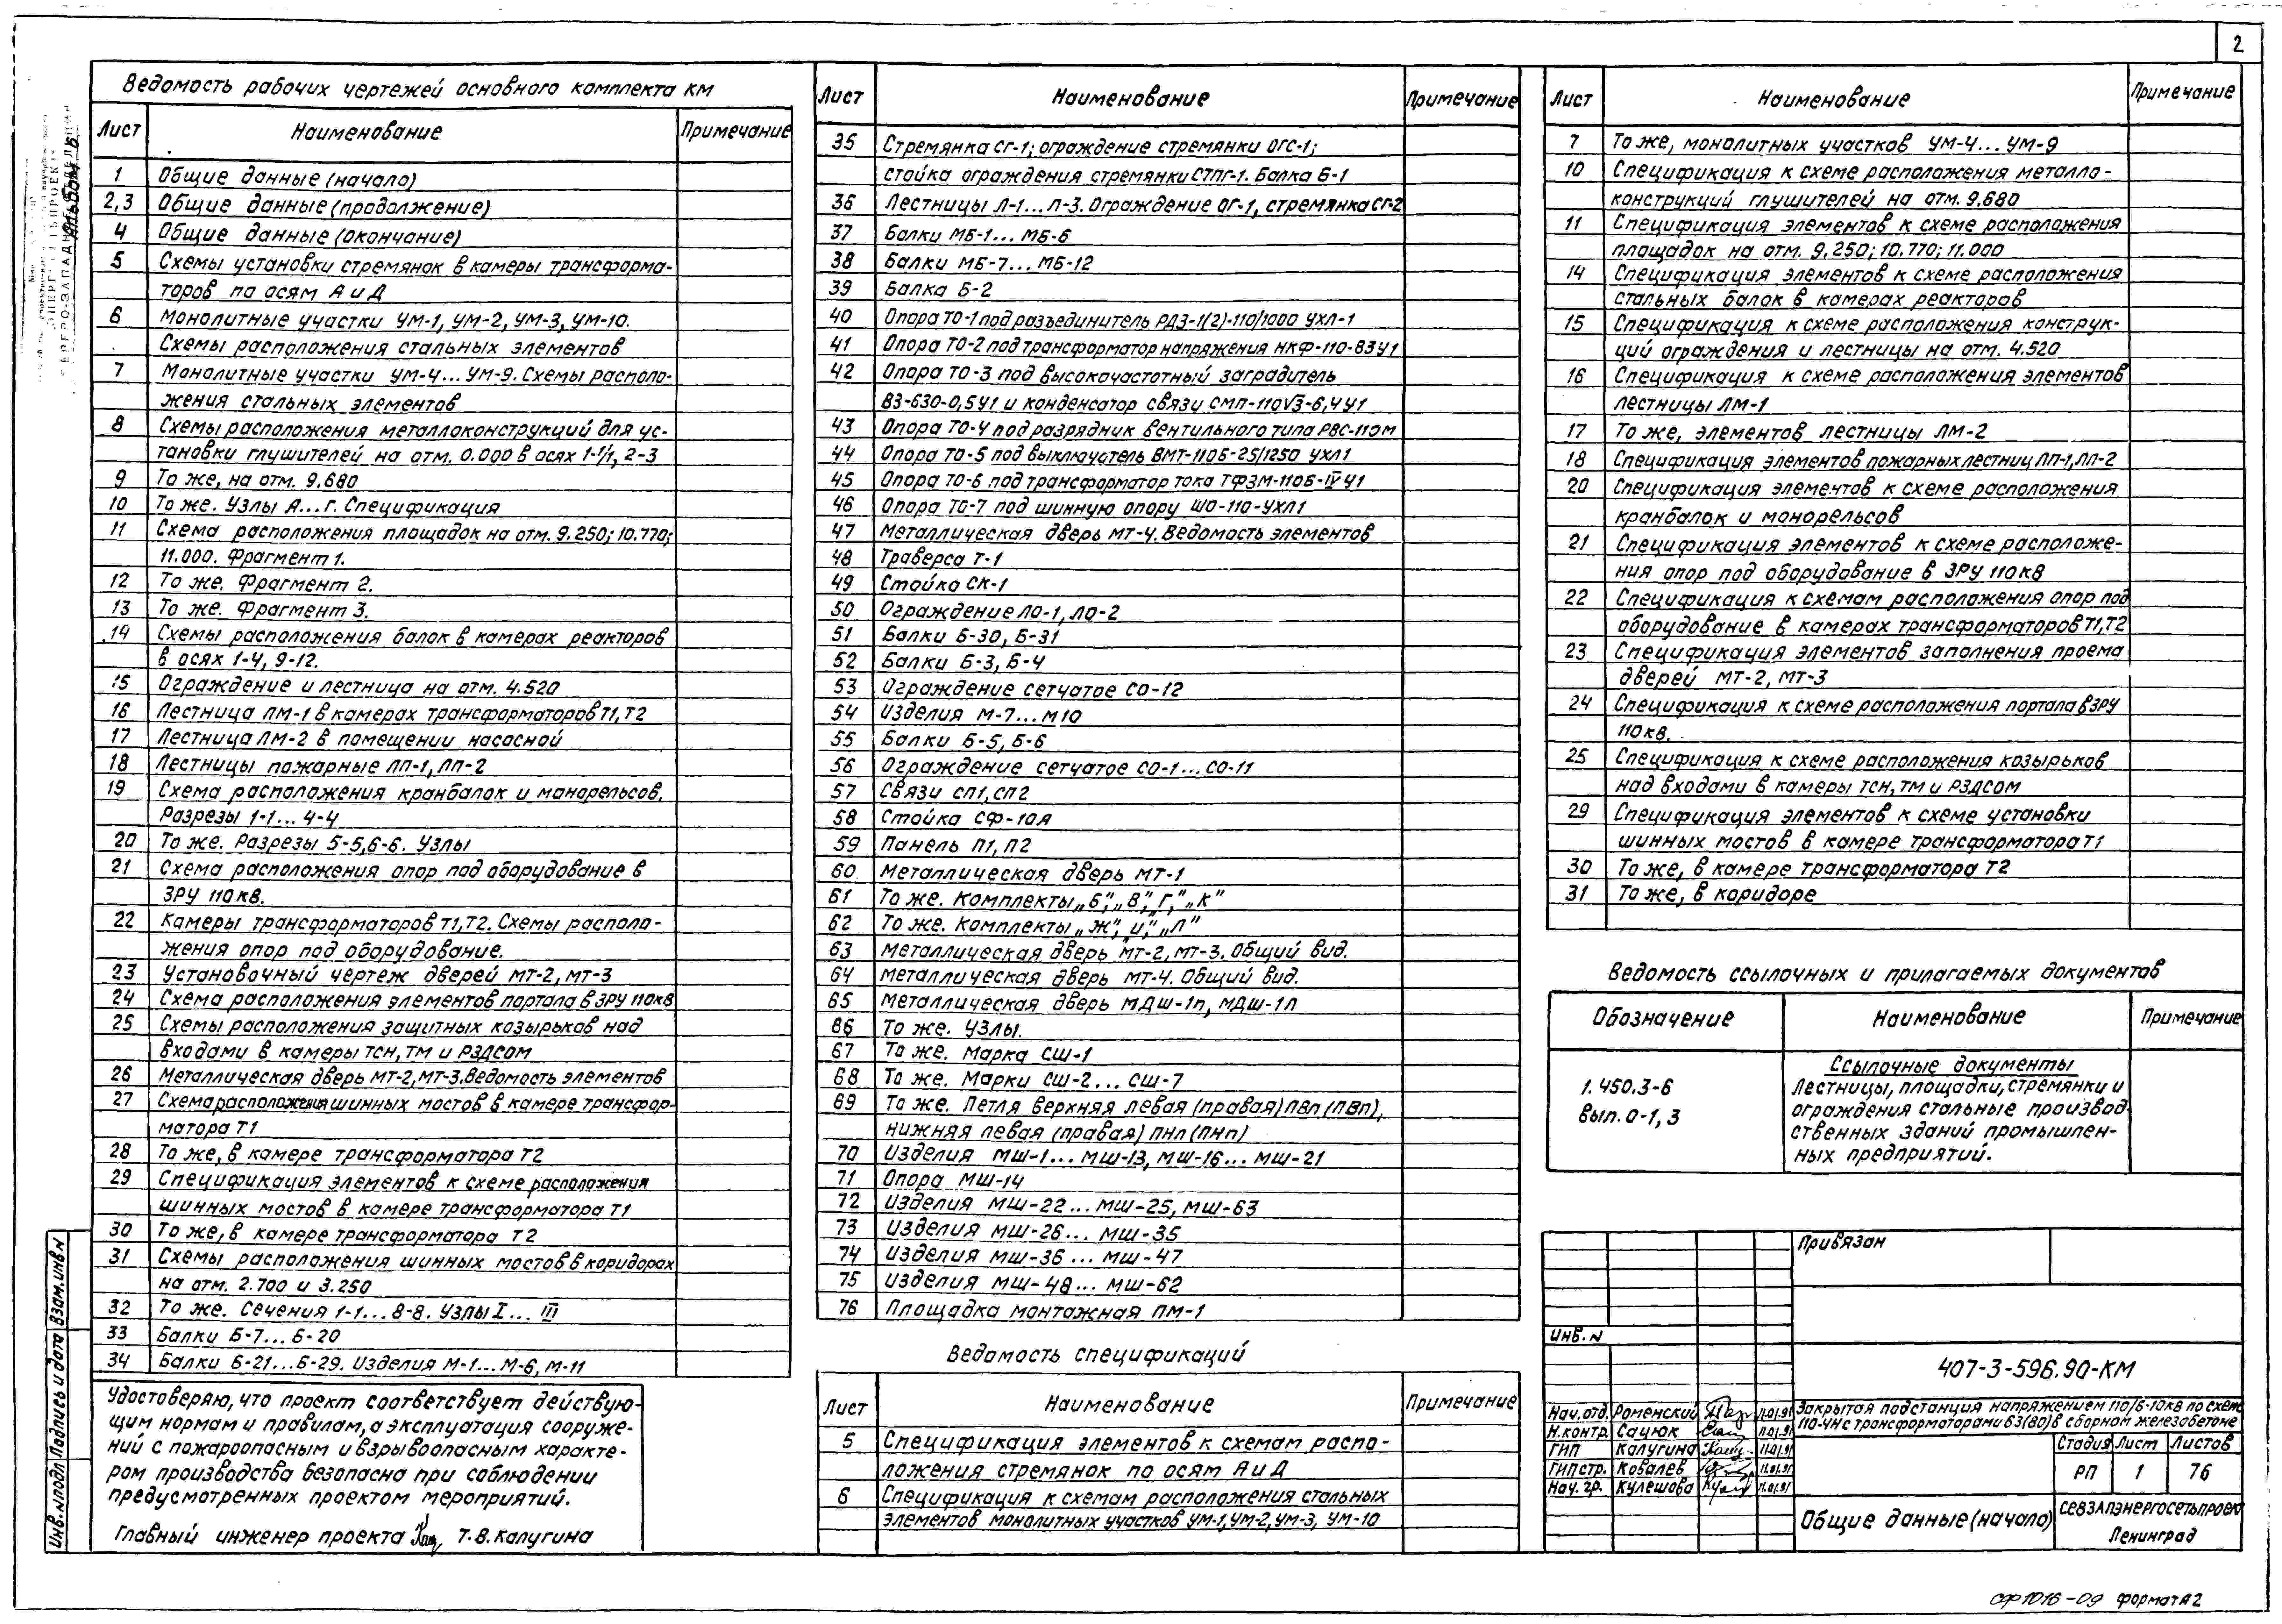 2
Альбом 6
Ведомость рабочих чертежей основного комплекта КМ
Лист Наименование Примечание
1 Общие данные (начало)
2,3 Общие данные (продолжение)
4 Общие данные (окончание)
5 Схемы установки стремянок в камеры трансформа-
торов по осям А и Д
6 Монолитные участки УМ-1, УМ-2, УМ-3, УМ-10.
Схемы расположения стальных элементов
7 Монолитные участки УМ-4... УМ-9. Схемы располо-
жения стальных элементов
8 Схемы расположения металлоконструкций для ус-
тановки глушителей на отм. 0.000 в осях 1-1/1, 2-3
9 То же, на отм. 9.680
10 То же. Узлы А...Г. Спецификация
11 Схема расположения площадок на отм. 9.250; 10.770;
11.000. Фрагмент 1.
12 То же. Фрагмент 2.
13 То же. Фрагмент 3.
14 Схемы расположения балок в камерах реакторов
в осях 1-4, 9-12.
15 Ограждение и лестница на отм. 4.520
16 Лестница ЛМ-1 в камерах трансформаторов Т1, Т2
17 Лестница ЛМ-2 в помещении насосной
18 Лестницы пожарные ЛП-1, ЛП-2
19 Схема расположения кранбалок и монорельсов.
Разрезы 1-1... 4-4
20 То же. Разрезы 5-5, 6-6. Узлы
21 Схема расположения опор под оборудование в
ЗРУ 110кв.
22 Камеры трансформаторов Т1, Т2. Схемы располо-
жения опор под оборудование.
23 Установочный чертеж дверей МТ-2, МТ-3
24 Схема расположения элементов портала в ЗРУ 110кв
25 Схемы расположения защитных козырьков над
входами в камеры ТСН, ТМ и РЗДСОМ
26 Металлическая дверь МТ-2, МТ-3. Ведомость элементов
27 Схема расположения шинных мостов в камере трансфор-
матора Т1
28 То же, в камере трансформатора Т2
29 Спецификация элементов к схеме расположения
шинных мостов в камере трансформатора Т1
30 То же, в камере трансформатора Т2
31 Схемы расположения шинных мостов в коридорах
на отм. 2.700 и 3.250
32 То же. Сечения 1-1... 8-8. Узлы I... III
33 Балки Б-7... Б-20
34 Балки Б-21...Б-29. Изделия М-1... М-6, М-11
Удостоверяю, что проект соответствует действую-
щим нормам и правилам, а эксплуатация сооруже-
ний с пожароопасным и взрывоопасным характе-
ром производства безопасна при соблюдении
предусмотренных проектом мероприятий.
Главный инженер проекта Т.В. Калугина
Инв.№подл Подпись и дата Взам.инв№
Лист Наименование Примечание
35 Стремянка СГ-1; ограждение стремянки ОГС-1;
стойка ограждения стремянки СТПГ-1. Балка Б-1
36 Лестницы Л-1... Л-3. Ограждение ОГ-1, стремянка СГ-2
37 Балки МБ-1... МБ-6
38 Балки МБ-7... МБ-12
39 Балка Б-2
40 Опора ТО-1 под разъединитель РДЗ-1(2)-110/1000 УХЛ-1
41 Опора ТО-2 под трансформатор напряжения НКФ-110-83У1
42 Опора ТО-3 под высокочастотный заградитель
ВЗ-630-0,5У1 и конденсатор связи СМП-110√3-6,4У1
43 Опора ТО-4 под разрядник вентильного типа РВС-110М
44 Опора ТО-5 под выключатель ВМТ-110Б-25/1250 УХЛ1
45 Опора ТО-6 под трансформатор тока ТФЗМ-110Б-IVУ1
46 Опора ТО-7 под шинную опору ШО-110-УХЛ1
47 Металлическая дверь МТ-4. Ведомость элементов
48 Траверса Т-1
49 Стойка СК-1
50 Ограждение ЛО-1, ЛО-2
51 Балки Б-30, Б-31
52 Балки Б-3, Б-4
53 Ограждение сетчатое СО-12
54 Изделия М-7... М10
55 Балки Б-5, Б-6
56 Ограждение сетчатое СО-1... СО-11
57 Связи СП1, СП2
58 Стойка СФ-10А
59 Панель П1, П2
60 Металлическая дверь МТ-1
61 То же. Комплекты „Б", „В", „Г", „К"
62 То же. Комплекты „Ж", „И", „Л"
63 Металлическая дверь МТ-2, МТ-3. Общий вид.
64 Металлическая дверь МТ-4. Общий вид.
65 Металлическая дверь МДШ-1п, МДШ-1Л
66 То же. Узлы.
67 То же. Марка СШ-1
68 То же. Марки СШ-2... СШ-7
69 То же. Петля верхняя левая (правая) ПВл (ПВп),
нижняя левая (правая) ПНл (ПНп)
70 Изделия МШ-1... МШ-13, МШ-16... МШ-21
71 Опора МШ-14
72 Изделия МШ-22... МШ-25, МШ-63
73 Изделия МШ-26... МШ-35
74 Изделия МШ-36... МШ-47
75 Изделия МШ-48... МШ-62
76 Площадка монтажная ПМ-1
Ведомость спецификаций
Лист Наименование Примечание
5 Спецификация элементов к схемам распо-
ложения стремянок по осям А и Д
6 Спецификация к схемам расположения стальных
элементов монолитных участков УМ-1, УМ-2, УМ-3, УМ-10
Лист Наименование Примечание
7 То же, монолитных участков УМ-4... УМ-9
10 Спецификация к схеме расположения металло-
конструкций глушителей на отм. 9.680
11 Спецификация элементов к схеме расположения
площадок на отм. 9.250; 10.770; 11.000
14 Спецификация элементов к схеме расположения
стальных балок в камерах реакторов
15 Спецификация к схеме расположения конструк-
ций ограждения и лестницы на отм. 4.520
16 Спецификация к схеме расположения элементов
лестницы ЛМ-1
17 То же, элементов лестницы ЛМ-2
18 Спецификация элементов пожарных лестниц ЛП-1, ЛП-2
20 Спецификация элементов к схеме расположения
кранбалок и монорельсов
21 Спецификация элементов к схеме расположе-
ния опор под оборудование в ЗРУ 110кв
22 Спецификация к схемам расположения опор под
оборудование в камерах трансформаторов Т1, Т2
23 Спецификация элементов заполнения проема
дверей МТ-2, МТ-3
24 Спецификация к схеме расположения портала в ЗРУ
110кв.
25 Спецификация к схеме расположения козырьков
над входами в камеры ТСН, ТМ и РЗДСОМ
29 Спецификация элементов к схеме установки
шинных мостов в камере трансформатора Т1
30 То же, в камере трансформатора Т2
31 То же, в коридоре
Ведомость ссылочных и прилагаемых документов
Обозначение Наименование Примечание
Ссылочные документы
1.450.3-6 Лестницы, площадки, стремянки и
вып. 0-1, 3 ограждения стальные производ-
ственных зданий промышлен-
ных предприятий.
Привязан
Инв.№
407-3-596.90-КМ
Нач.отд. Роменский 11.01.91
Н.контр. Сацюк 11.01.91
ГИП Калугина 11.01.91
ГИПстр. Ковалев 11.01.91
Нач.гр. Кулешова 11.01.91
Закрытая подстанция напряжением 110/6-10кв по схеме
110-4Н с трансформаторами 63(80) в сборном железобетоне
Стадия Лист Листов
РП 1 76
Общие данные (начало)
СЕВЗАПЭНЕРГОСЕТЬПРОЕКТ
Ленинград
СФ1016-09 формат А2